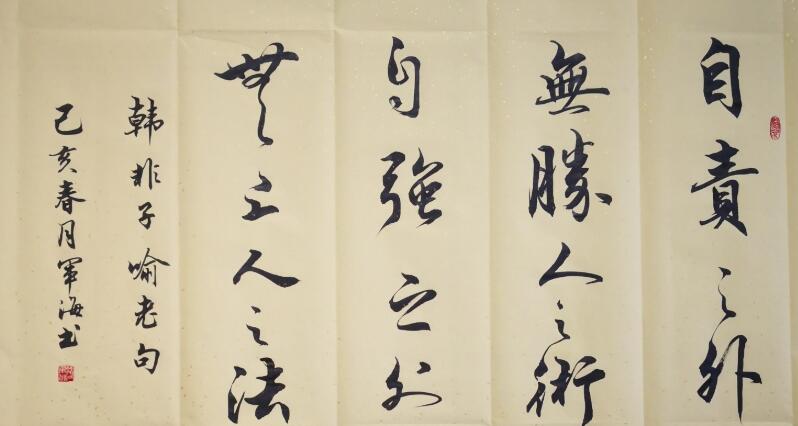 自責之外
無勝人之術
自強之外
無上人之法
韩非子喻老句
己亥春月軍海书